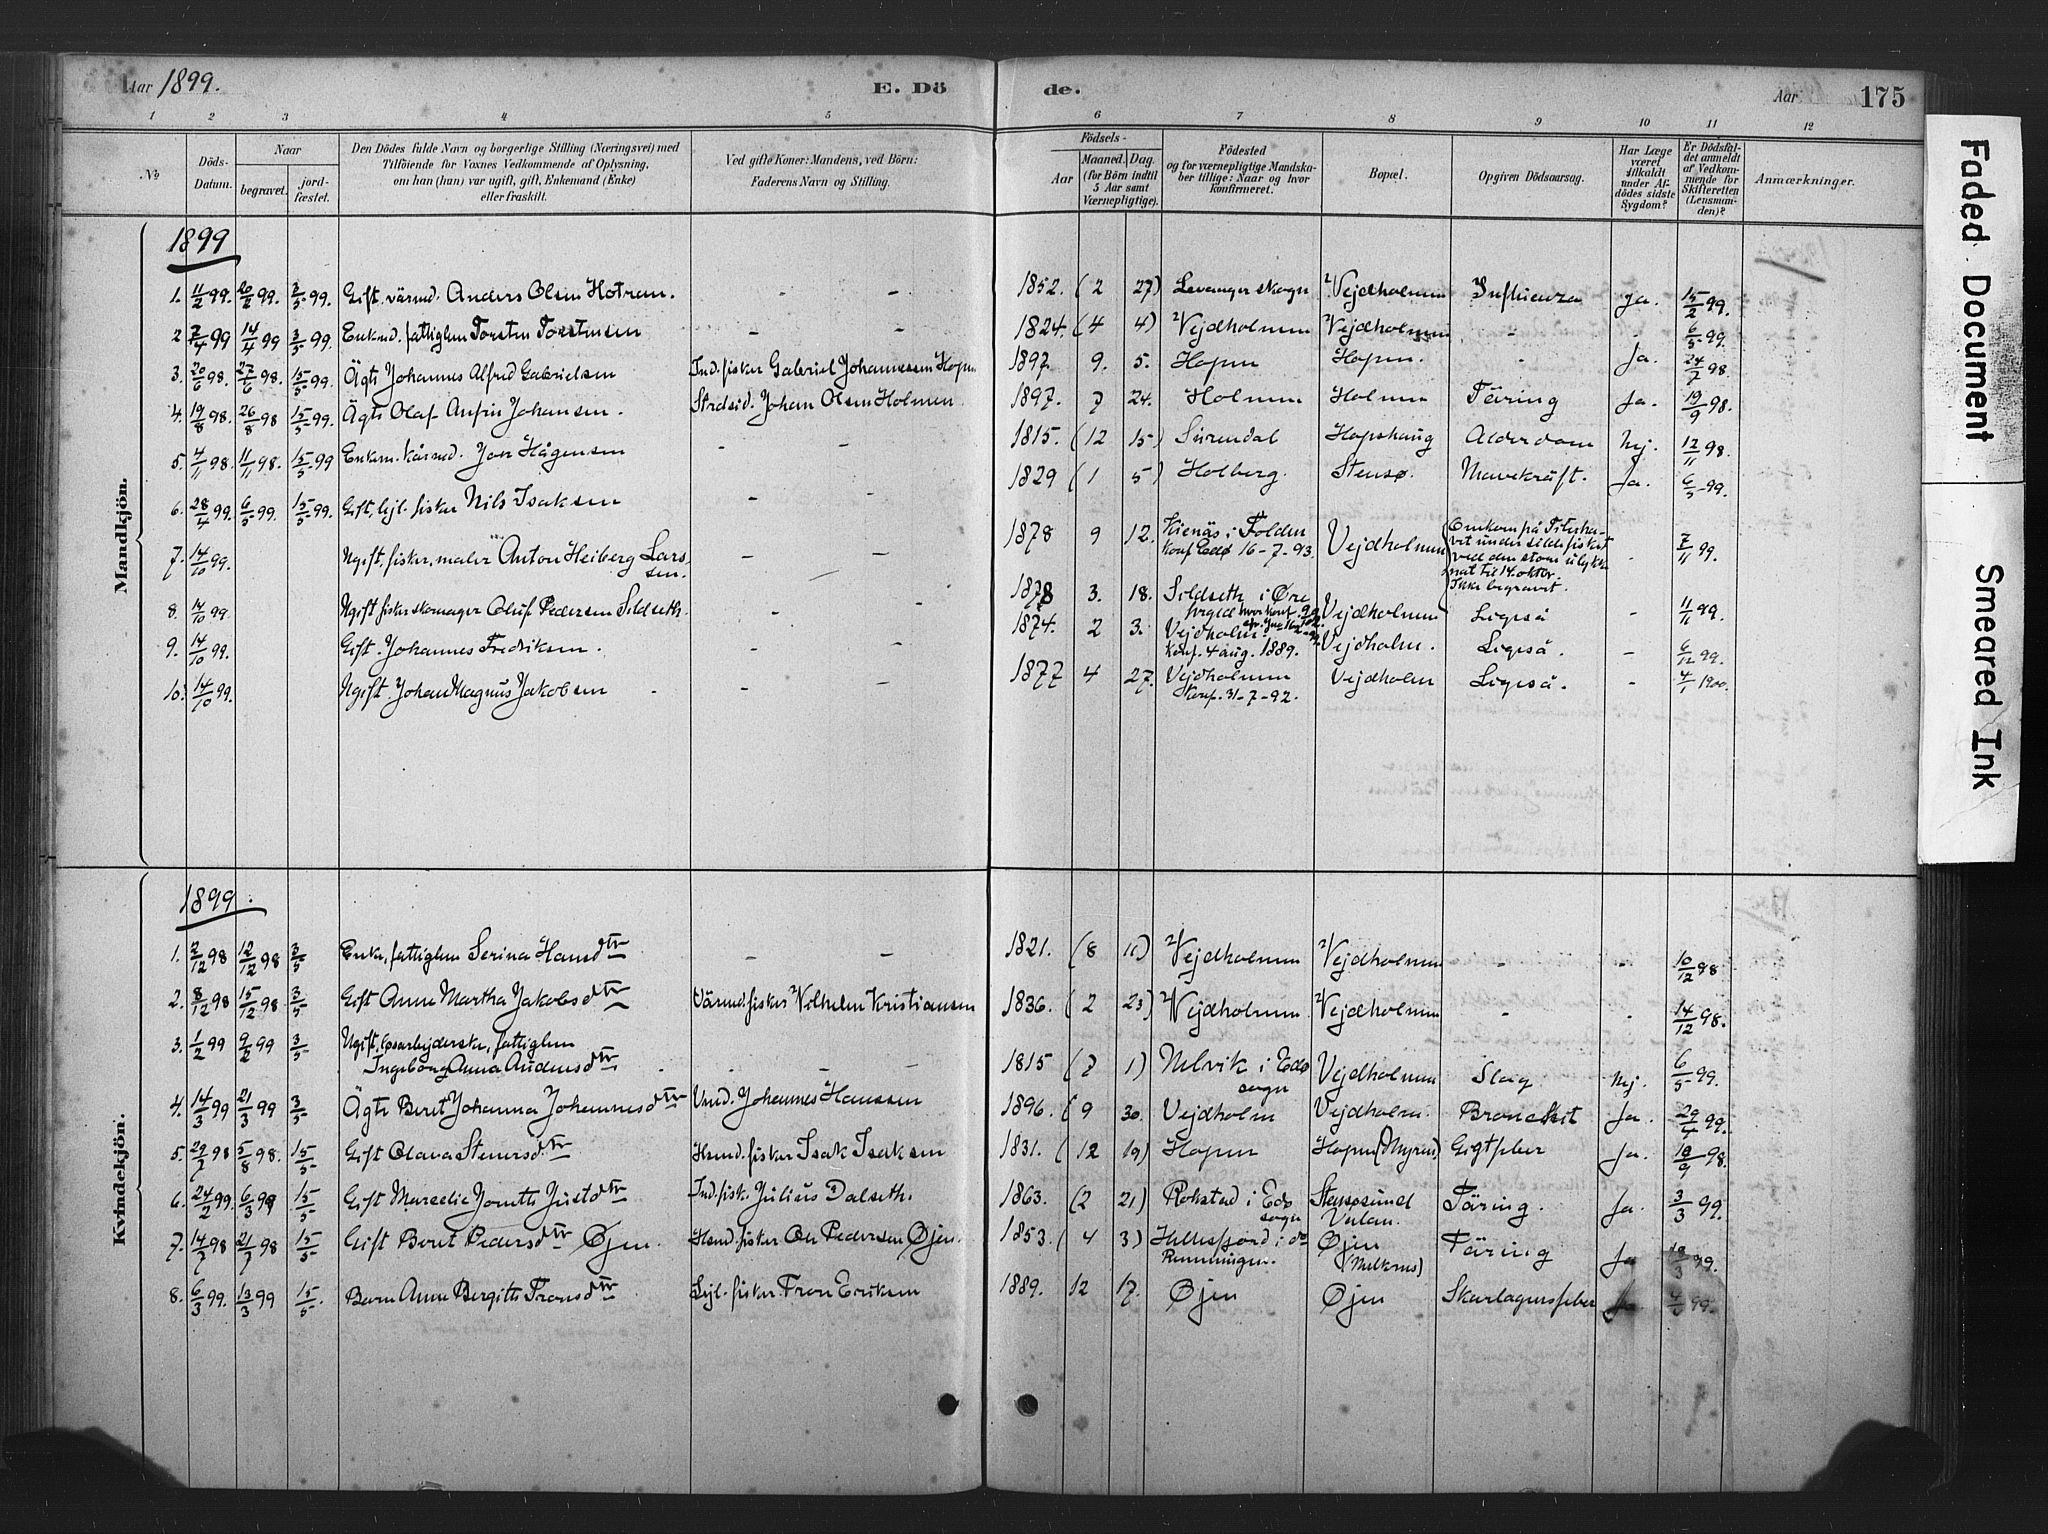 Aar 1899.
E. Dö
de.
Aar
175
1 2 3 4 5
6 7 8 9 10 11 12
No
Döds-Datum.
Naar
begravet.
jord-fæstet.
Den Dödes fulde Navn og borgerlige Stilling (Næringsvei) med
Tilföiende for Voxnes Vedkommende af Oplysning,
om han (hun) var ugift, gift, Enkemand (Enke)
eller fraskilt.
Ved gifte Koner: Mandens, ved Börn:
Faderens Navn og Stilling.
Födsels-
Aar
Maaned. Dag.
(for Börn indtil
5 Aar samt
Værnepligtige).
Födested
og for værnepligtige Mandska-
ber tillige: Naar og hvor
konfirmeret.
Bopæl.
Opgiven Dödsaarsag.
Har Læge
været
tilkaldt
under Af-
dödes sidste
Sygdom?
Er Dödsfal-
det anmeldt
af Vedkom-
mende for
Skifteretten
(Lensman-
den)?
Anmærkninger.
Mandkjön.
1899
1. 11/2 99. 20/2 99. 3/5 99. Gift. Anders Olsen - - 1852. (2 27) Levanger skogn Vejdholmen Influenza Ja. 15/2 99.
2 7/4 99 14/4 99 3/5 99. Enkmd. fattiglem Torsten Torstensen - - 1824. (4 4) Vejdholmen Vejdholmen - - 6/5 99.
3. 20/6 98. 27/6 98. 15/5 99. Ägte Johannes Alfred Gabrielsen Ind. fisker Gabriel Johannessen Hopen 1897. 9. 5. Hopen Hopen. - Ja. 24/7 98.
4. 19/8 98. 26/8 98 15/5 99. Ägte Olaf Anfin Johansen. Strdsid. Johan Olsen Holmen. 1897. 7 24. Holmen Holmen Täring Ja. 19/9 98.
5. 4/11 98. 11/11 98. 15/5 99 Enkem. kårmd. Hågensen - - 1815. (12 15) Surendal Hopshaug Alderdom Nej. 12/11 98.
6. 28/4 99. 6/5 99. 15/5 99. Gift. lejl. fisker Nils Isaksen - - 1829 (1 5) Holberg. Stensø. Mavekräft. Ja. 6/5 99.
7. 14/10 99. Ugift. fisker, maler Anton Heiberg Lars-
sen. - - 1878 9 12. i Folden
Konf. Edø 16-7-93. Vejdholmen Omkom på Titerha-
vet under sildefisket
ved den store ulykke
nat til 14. oktbr.
Ikke begravet. - 7/11 99.
8. 14/10 99. Ugift fisker skomager Oluf Pedersen Sildseth. - - 1878 3. 18. Sildseth i Øre
prgjeld Vejdholmen Ligeså - 11/11 99.
9. 14/10 99. Gift. Johannes Fredriksen. - - 1874. 2 3. Vejdholm.
Konf. 4 aug. 1889. Vejdholm. Ligeså. - 6/12 99.
10. 14/10 99. Ugift. Johan Magnus Jakobsen - - 1877 4 27. Vejdholmen
Konf. 31-7-92. Vejdholm Ligeså. - 4/1 1900.
Kvindekjön.
1899.
1. 2/12 98 12/12 98 3/5 Enke, fattiglem Serina Hansdtr - - 1821. (8 11) Vejdholmen Vejdholmen - - 10/12 98
2. 8/12 98 15/12 98 3/5 Gift Anne Martha Jakobsdtr Värmd. fisker Vilhelm Kristiansen 1836. (2 23) Vejdholmen. Vejdholmen - - 14/12 98.
3. 1/2 99 9/2 99 3/5 Ugift, løsarbejderske, fattiglem
Ingeborg Anna Andersdtr - - 1815 (7 1) Nelvik i Edø
sogn Vejdholmen Slag Nej. 6/5 99.
4. 14/3 99 21/3 99 3/5 Ägte Beret Johanna Johannesdtr Vmd. Johannes Hanssen 1896. (9 30. Vejdholm Vejdholm. Bronckit Ja. 29/4 99.
5. 29/7 98 5/8 98. 15/5 Gift Olava Stenersdtr Hsmd. fisker Isak Isaksen 1831. (12 19) Hopen Hopen (Myren) Gigtfeber Ja. 18/9 98.
6. 24/2 99. 6/3 99 15/5 Gift Marcelie Joneth Justdtr Ind. fisk. Julius Dalseth. 1863. (2 21) Rokstad i Edø
sogn Täring. Ja. 3/3 99.
7. 14/7 98 21/7 98 15/5 Gift Beret Pedersdtr Øjen. Hsmd. fisker Ole Pedersen Øjen. 1853. (4 3) i do
Øjen Täring Ja 99.
8. 6/3 99. 13/3 99 15/5 Barn Anne Bergithe Fronsdtr Lejl. fisker Fron Eriksen 1889. 12 17. Øjen Øjen Skarlagensfeber Ja 99.
Faded Document
Smeared Ink